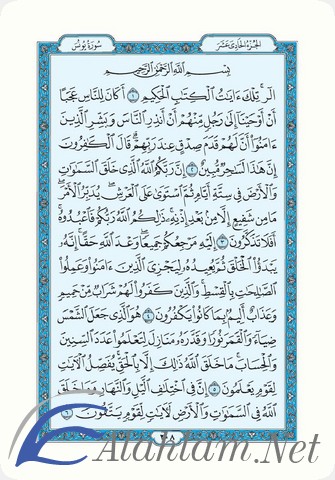 الجزء الحادي عشر
سورة يونس
بسم الله الرحمن الرحيم
الر تلك ءايت الكتب الحكيم ١ أكان للناس عجبا
أن أوحينا إلى رجل منهم أن أنذر الناس وبشر الذين
ءامنوا أن لهم قدم صدق عند ربهم قال الكفرون
إن هذا لسحر مبين ٢ إن ربكم الله الذى خلق السموت
والأرض فى ستة أيام ثم استوى على العرش يدبر الأمر
ما من شفيع إلا من بعد إذنه ذلكم الله ربكم فاعبدوه
أفلا تذكرون ٣ إليه مرجعكم جميعا وعد الله حقا إنه
يبدؤا الخلق ثم يعيده ليجزى الذين ءامنوا وعملوا
الصلحت بالقسط والذين كفروا لهم شراب من حميم
وعذاب أليم بما كانوا يكفرون ٤ هو الذى جعل الشمس
ضياء والقمر نورا وقدره منازل لتعلموا عدد السنين
والحساب ما خلق الله ذلك إلا بالحق يفصل الأيت
لقوم يعلمون ٥ إن فى اختلف اليل والنهار وما خلق
الله فى السموت والأرض لأيت لقوم يتقون ٦
٢٠٨
Atahlam.Net